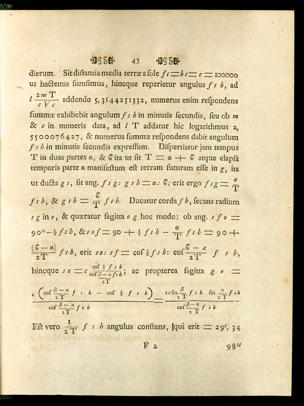 43
dierum. Sit distantia media terræ a sole fs=bs=c=100000
ut hactenus sumsimus, hincque reperietur angulus fsb, ad
l 2mT/cVc addendo 5,3144251332, numerus enim respondens
summæ exhibebit angulum fsb in minutis secundis, seu ob m
& c in numeris data, ad l T addatur hic logarithmus 2,
5500076427, & numerus summæ respondens dabit angulum
fsb in minutis secundis expressum. Dispertiatur jam tempus
T in duas partes a, & ita ut sit T = a + atque elapsa
temporis parte a manifestum est terram futuram esse in g, ita
ut ducta gs, sit ang. fsg: gsb = a: ; erit ergo fsg = a/T
fsb, & gsb = /T fsb. Ducatur corda fb, secans radium
sg in o, & quæratur sagitta og hoc modo: ob ang. sfo =
90°-½fsb, & sof = 90 + ½fsb - a/T fsb = 90 +
fsb, erit so:sf = cof ½fsb: cof fsb,
hincque so = ac propterea sagitta go =
Est vero 1/2T fsb angulus constans, qui erit = 29', 34
F 2
98"